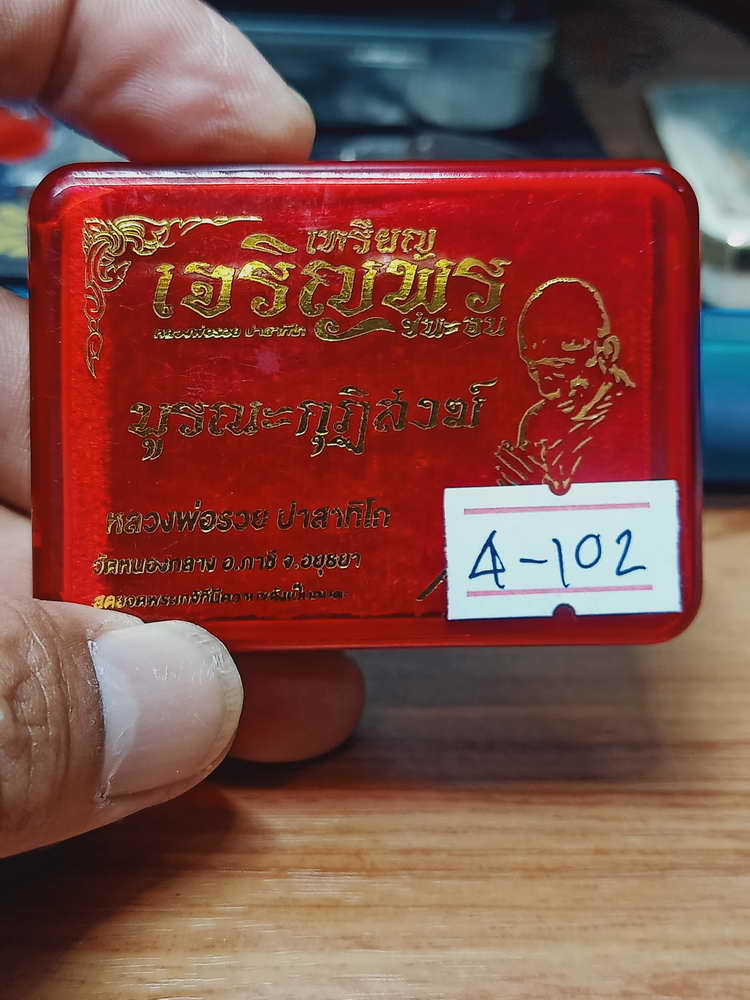 เหรียญ
เจริญพร
หลวงพ่อรวย ปาสาทิโก
บูรณะกุฏิสงฆ์
หลวงพ่อรวย ปาสาทิโก
วัดหนองกลาง อ.ภาชี จ.อยุธยา
4-102